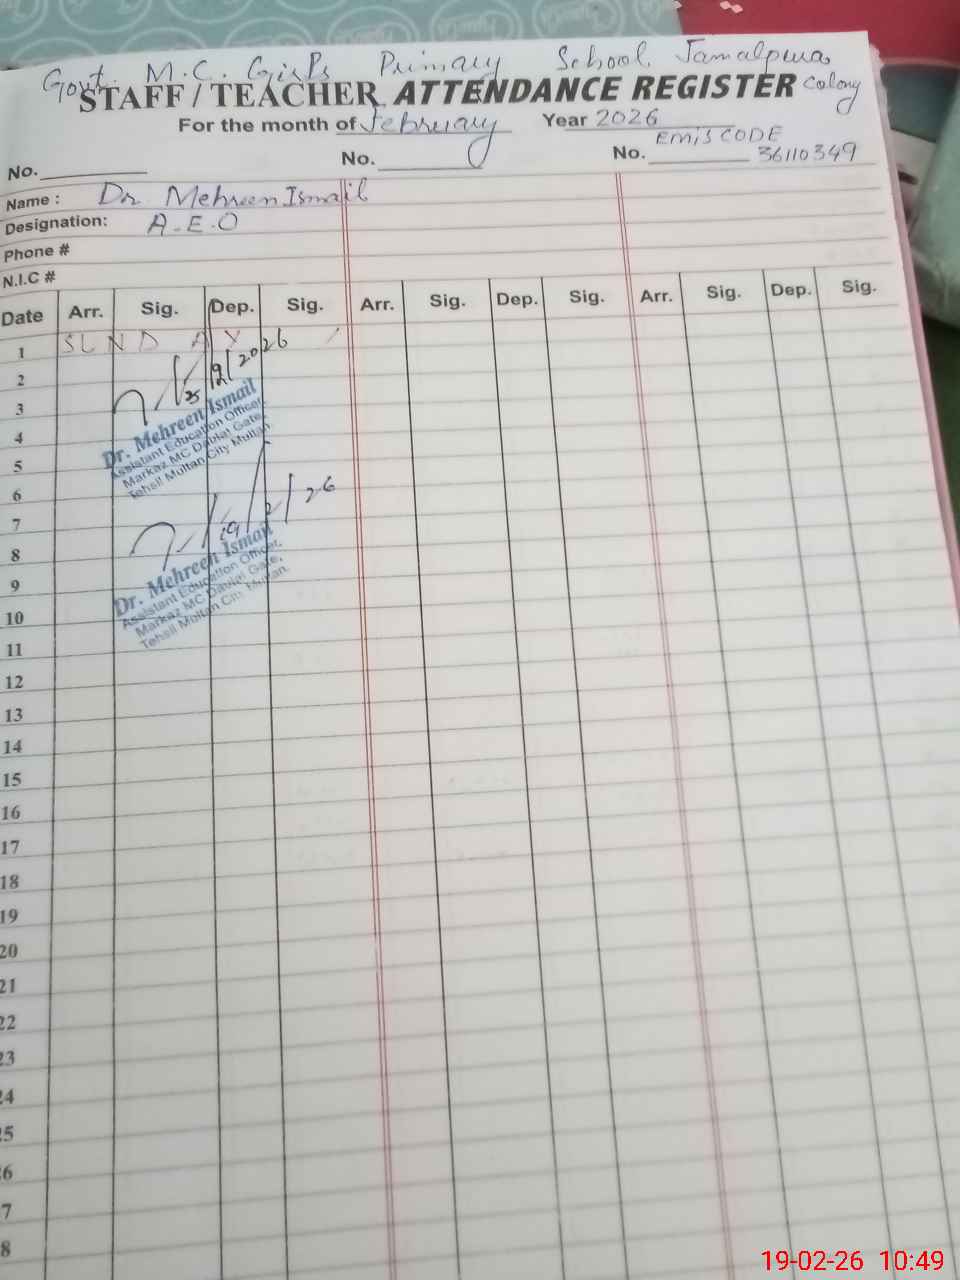 Govt. M.C. Girls Primary School Jamalpura
Colony
STAFF / TEACHER ATTENDANCE REGISTER
For the month of February Year 2026
EMIS CODE
No. No. No. 36110349
Name : Dr Mehreen Ismail
Designation: A.E.O
Phone #
N.I.C #
Date Arr. Sig. Dep. Sig. Arr. Sig. Dep. Sig. Arr. Sig. Dep. Sig.
1 SUNDAY
2
3
4
5
6
7
8
9
10
11
12
13
14
15
16
17
18
19
20
21
22
23
24
25
26
27
28
2026
Dr. Mehreen Ismail
Assistant Education Officer,
Markaz MC Daulat Gate,
Tehsil Multan City Multan.
19/2/26
Dr. Mehreen Ismail
Assistant Education Officer,
Markaz MC Daulat Gate,
Tehsil Multan City Multan.
19-02-26 10:49